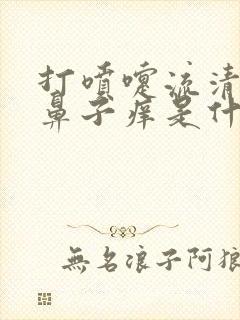 打喷嚏流清
鼻子痒是什
無名浪子阿狼